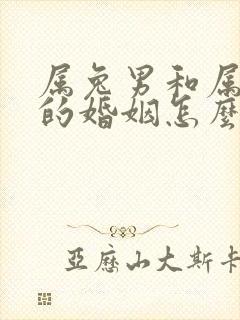 属兔男和属
的婚姻怎麼
亞歷山大斯卡